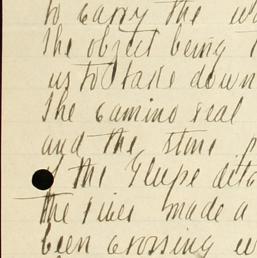 to carry the
the object being
us to take down
the camino real
and the stine
of the Glupe
the river made a
been crossing